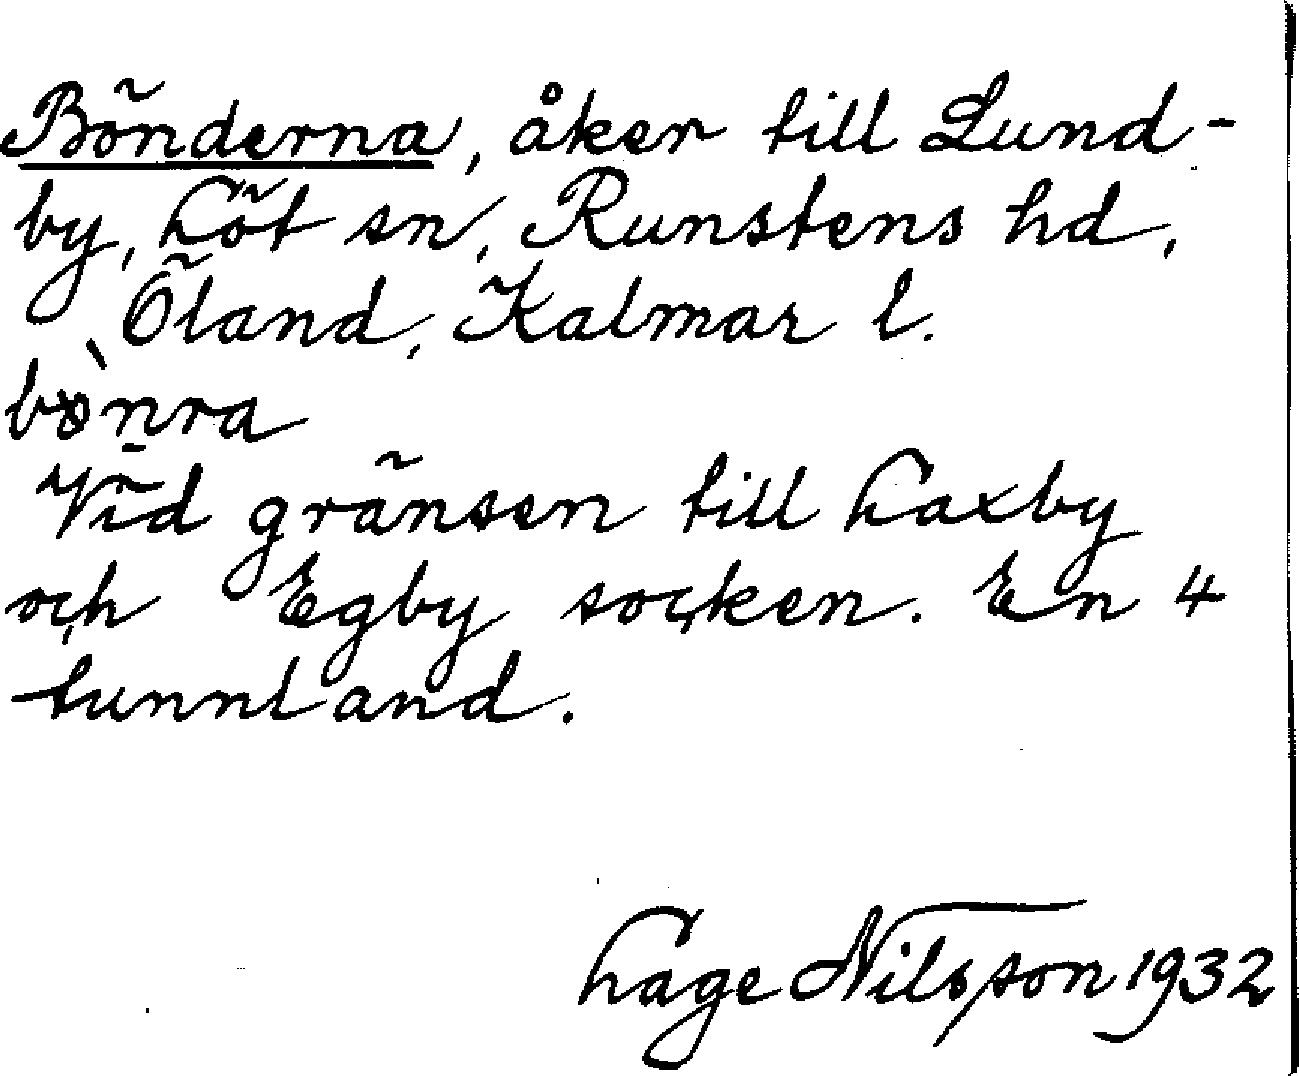 Bönderna, åker till Lund-
by, Löt sn, Runstens hd,
Öland, Kalmar l.
bö̀nra
Vid gränsen till Laxby
och Egby socken. En 4
tunnland.
Lage Nilsson 1932